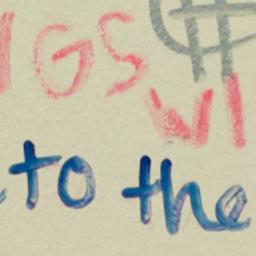 GS
WI
to the